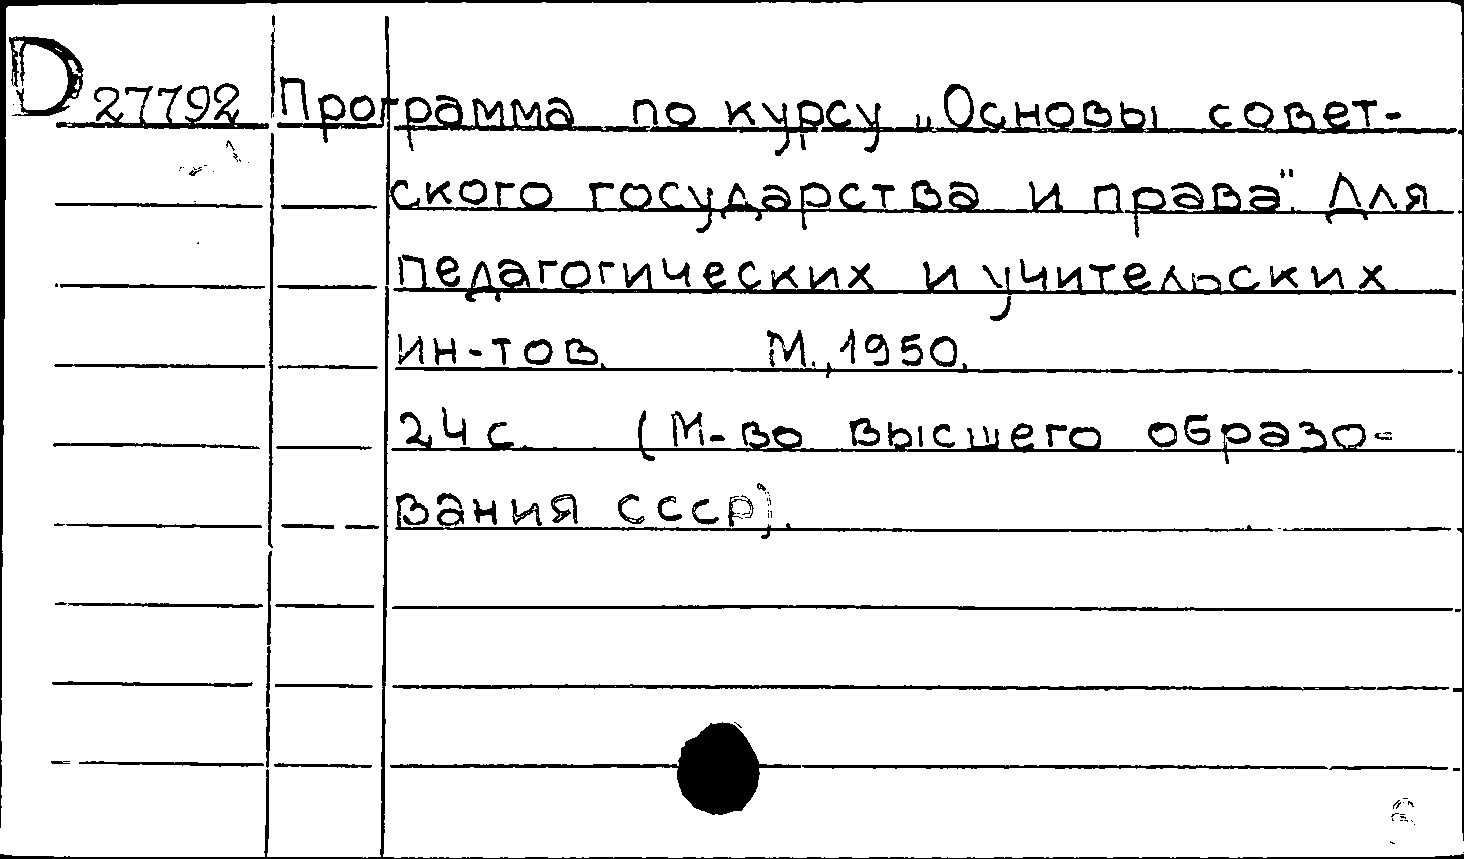 D 27792 Программа по курсу „Основы совет-
ского государства и права". Для
педагогических и учительских
ин-тов. М., 1950.
24 с. (М-во высшего образо-
вания СССР).